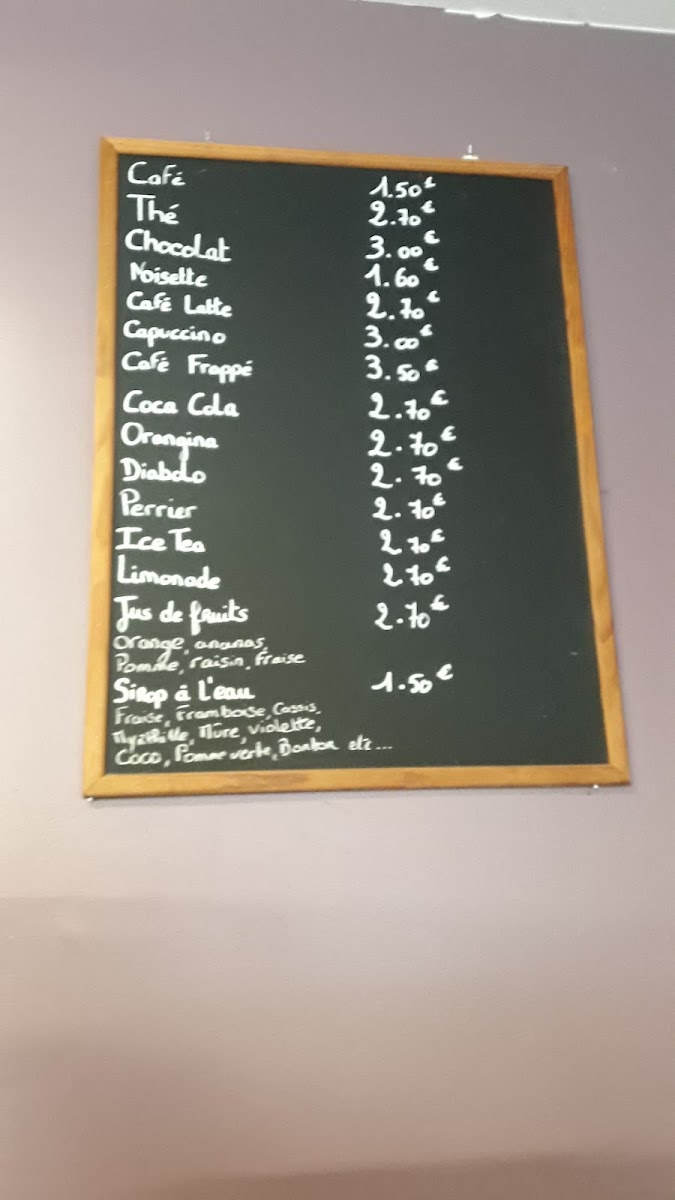 Café 1.50€
Thé 2.70€
Chocolat 3.00€
Noisette 1.60€
Café Latte 2.70€
Capuccino 3.00€
Café Frappé 3.50€
Coca Cola 2.70€
Orangina 2.70€
Diabolo 2.70€
Perrier 2.70€
Ice Tea 2.70€
Limonade 2.70€
Jus de fruits 2.70€
Orange, ananas,
Pomme, raisin, Fraise
Sirop à L'eau 1.50€
Fraise, Framboise, Cassis,
Mûre, violette,
Coco, Pomme verte, Bonbon etc...